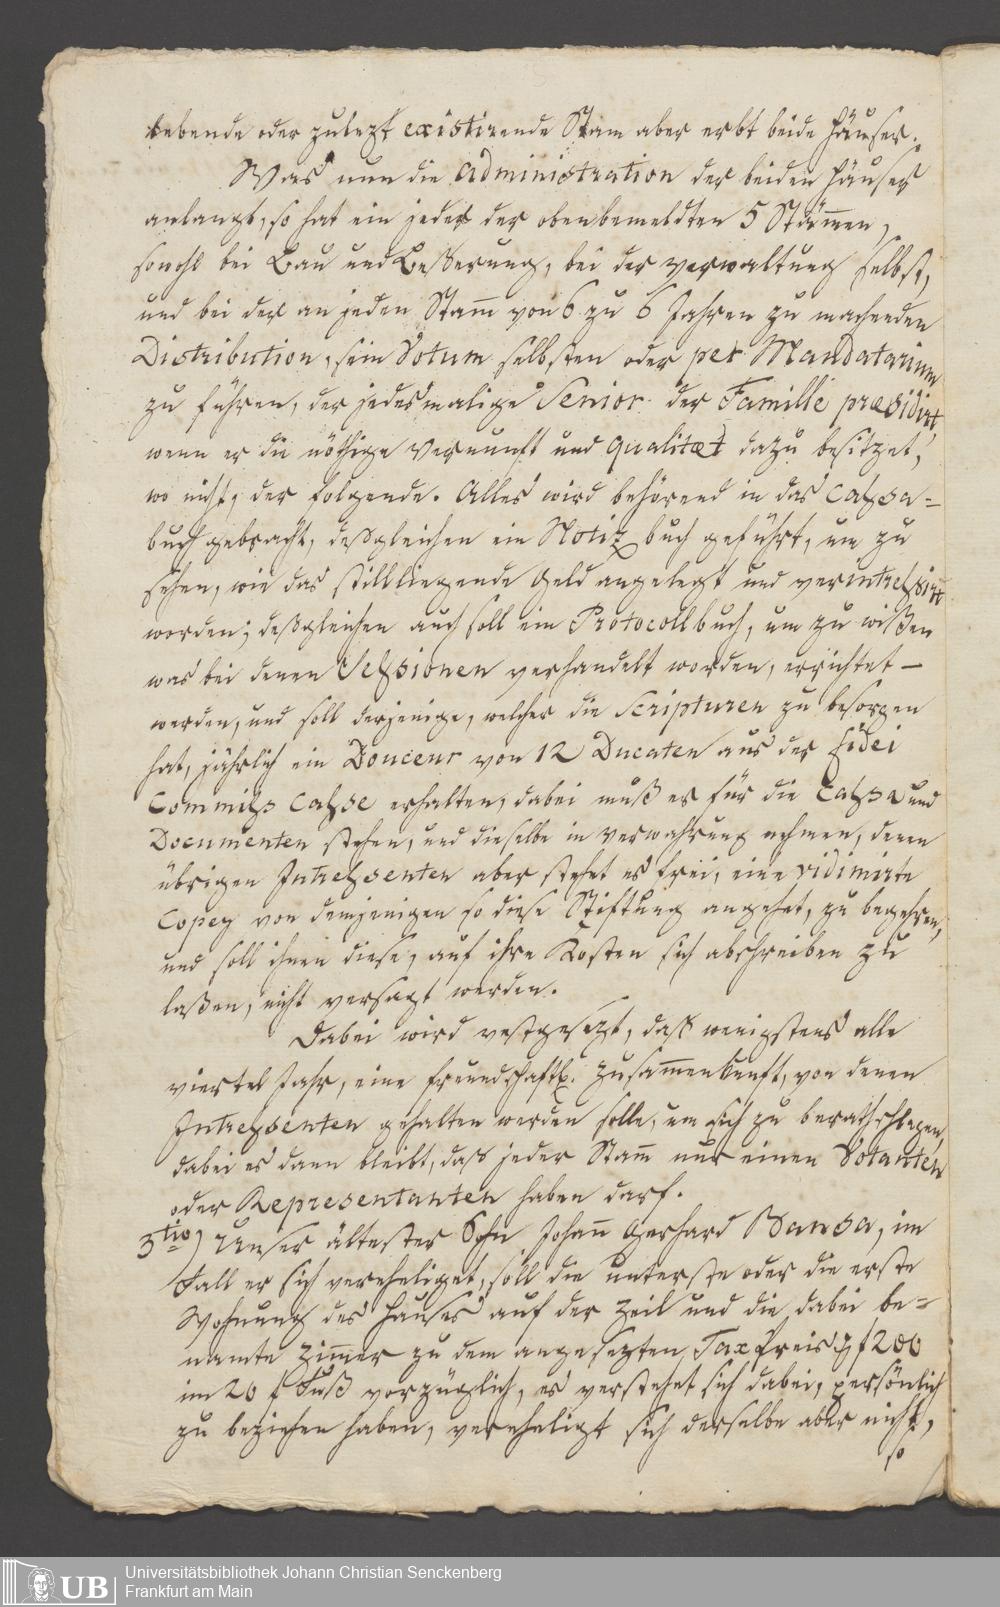 lebende oder zulezt existirende Stam aber erbt beide Häuser.
Was nun die Administration der beiden Häuser
anlangt, so hat ein jeder der obenbemeldten 5 Stam̄en,
sowohl bei Bau und Beßerung, bei der Verwaltung selbst,
und bei der an jeden Stam̄ von 6 zu 6 Jahren zu machenden
Distribution, sein Votum selbsten oder per Mandatarium
zu führen, der jedesmalige Senior der Famille præsidirt,
wenn er die nöthige Vernunft und qualitæt dazu besitzet,
wo nicht, der folgende. Alles wird behörend in das Caßa-
buch gebracht, deßgleichen ein Notiz buch geführt, um zu
sehen, wie das stillliegende Geld angelegt und verintreßirt
worden; deßgleichen auch soll ein Protocollbuch, um zu wißen
was bei denen Seßionen verhandelt worden, errichtet –
werden, und soll derjenige, welcher die Scripturen zu besorgen
hat, jährlich ein Douceur von 12 Ducaten aus der Fidei
Commiß Caße erhalten, dabei muß er für die Caßa und
Documenten stehen, und dieselbe in Verwahrung nehmen, denen
übrigen Intreßenten aber stehet es frei, eine vidimirte
Copey von demjenigen so diese Stiftung angehet, zu begehren,
und soll ihnen diese, auf ihre Kosten sich abschreiben zu
laßen, nicht versagt werden.
Dabei wird vestgesezt, daß wenigstens alle
viertel Jahr, eine freundschaftl. Zusam̄enkunft, von denen
Intreßenten gehalten werden solle, um sich zu berathschlagen,
dabei es dann bleibt, daß jeder Stam̄ nur einen Votanten
oder Representanten haben darf.
3tio) Unser ältester Sohn Johan̄ Gerhard Bansa, im
Fall er sich verehliget, soll die unterste oder die erste
Wohnung des Hauses auf der Zeil und die dabei be-
namte Zim̄er zu dem angesezten Tax Preis f 200
im 20 f Fuß vorzüglich, es verstehet sich dabei, persönlich
zu beziehen haben, verehligt sich derselbe aber nicht,
so
Universitätsbibliothek Johann Christian Senckenberg
Frankfurt am Main
UB